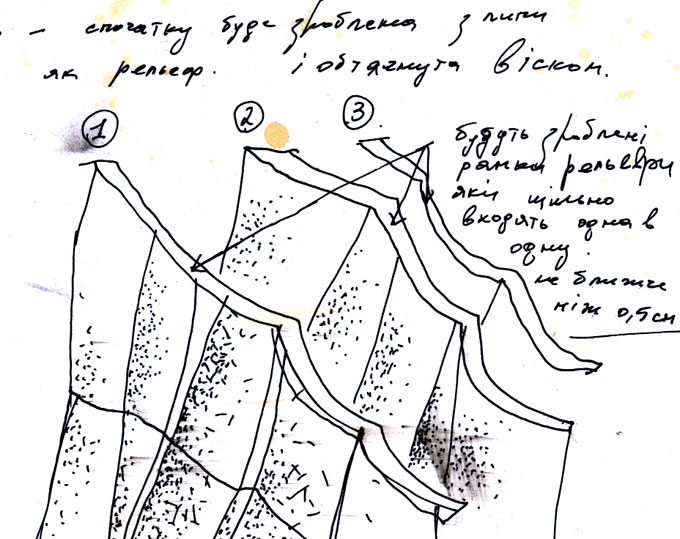 - спочатку буде зроблена з липи
як рельєф. і обтягнута віском.
1 2 3
будуть зроблені
рамки рельєфи
які щільно
входять одна в
одну.
не ближче
ніж 0,5 см